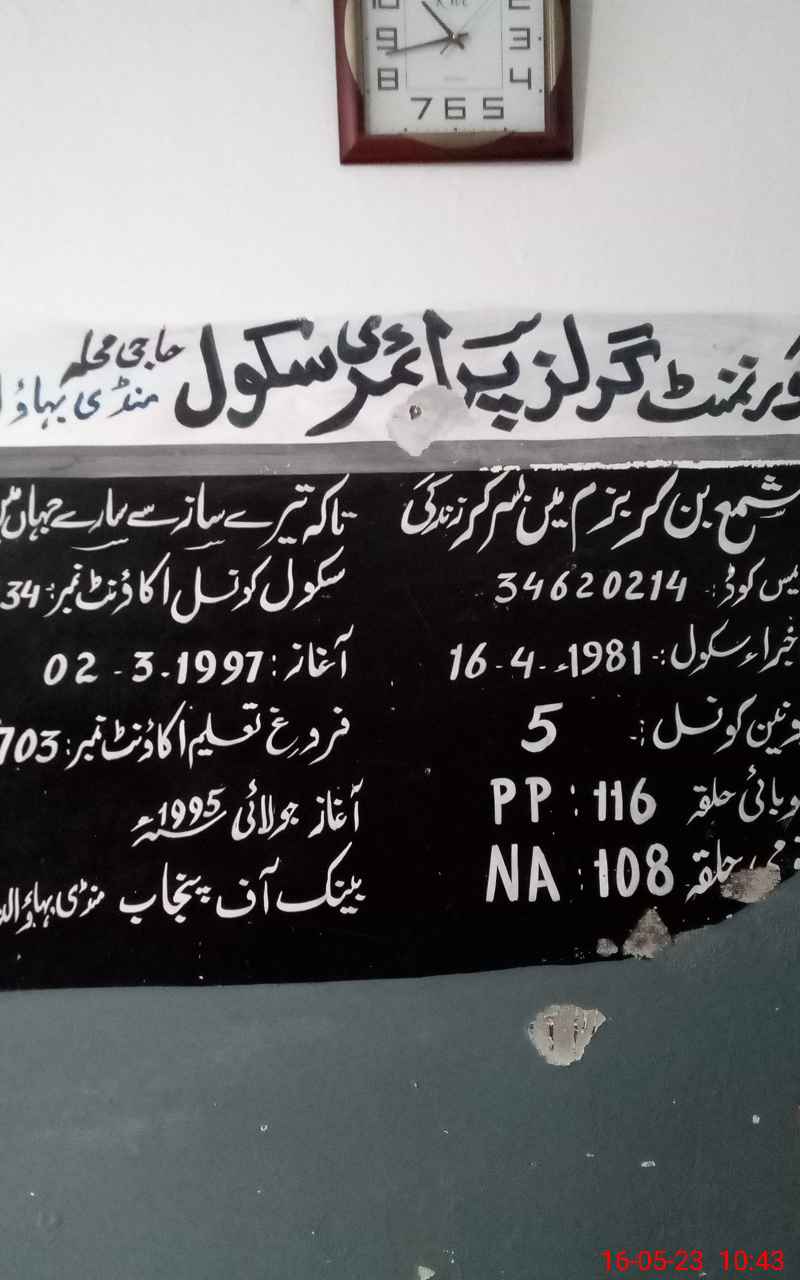 10 2
9 3
8 4
7 6 5
گورنمنٹ گرلز پرائمری سکول حاجی محلہ
منڈی بہاؤا
شمع بن کر بزم میں بسر کر زندگی
تاکہ تیرے ساز سے سارے جہاں میں
یمس کوڈ: 34620214
سکول کونسل اکاؤنٹ نمبر: 34
اجراء سکول:- 16-4-1981ء
آغاز: 02-3-1997
یونین کونسل:- 5
فروغ تعلیم اکاؤنٹ نمبر: 703
صوبائی حلقہ PP: 116
آغاز جولائی 1995ء
قومی حلقہ NA: 108
بینک آف پنجاب منڈی بہاؤالد
16-05-23 10:43